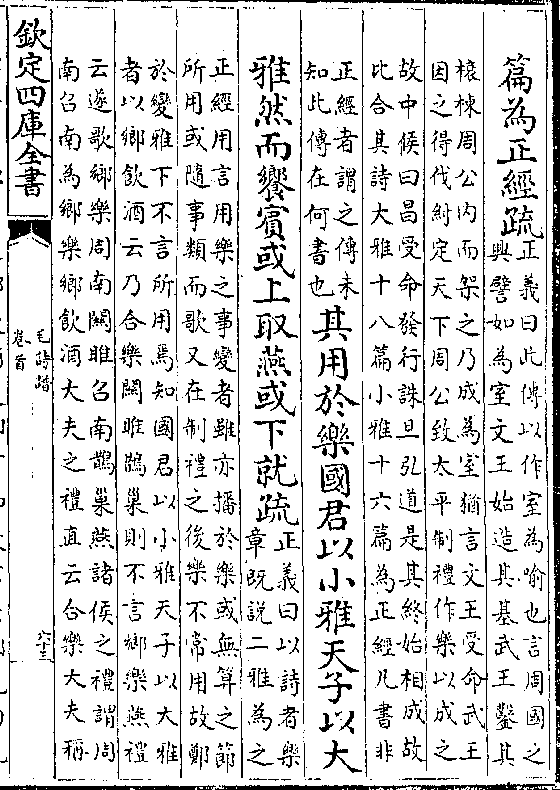 篇為正經疏正義曰此傳以作室為喻也言周國之
興譬如為室文王始造其基武王鑿其
榱棟周公内而架之乃成為室猶言文王受命武王
因之得伐紂定天下周公致太平制禮作樂以成之
故中候曰昌受命發行誅旦弘道是其終始相成故
比合其詩大雅十八篇小雅十六篇為正經凡書非
正經者謂之傳未
知此傳在何書也其用於樂國君以小雅天子以大
雅然而饗賓或上取燕或下就疏正義曰以詩者樂
章既説二雅為之
正經用言用樂之事變者雖亦播於樂或無算之節
所用或隨事類而歌又在制禮之後樂不常用故鄭
於變雅下不言所用焉知國君以小雅天子以大雅
者以鄉飲酒云乃合樂關雎鵲巢則不言鄉樂燕禮
云遂歌鄉樂周南關雎召南鵲巢燕諸侯之禮謂周
南召南為鄉樂鄉飲酒大夫之禮直云合樂大夫稱
欽定四庫全書
毛詩譜
卷首
六十三